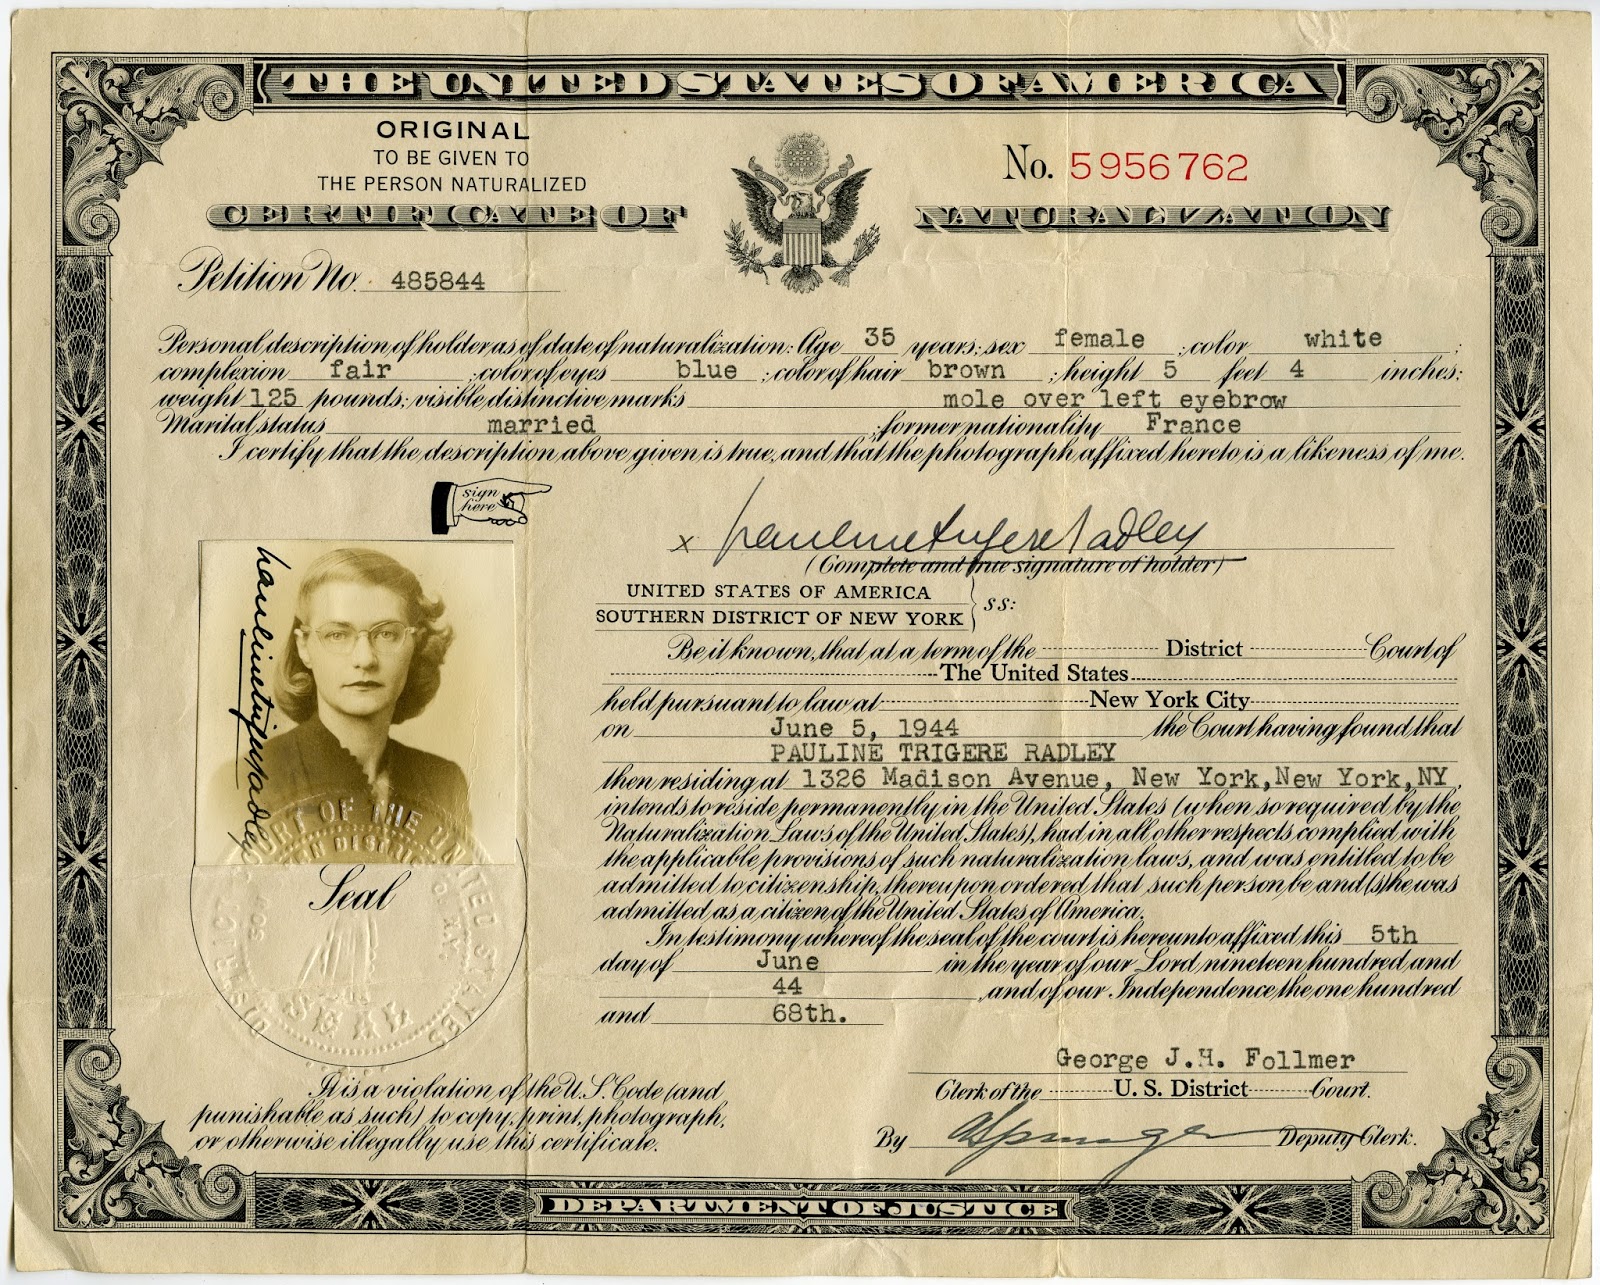 THE UNITED STATES OF AMERICA
ORIGINAL
TO BE GIVEN TO
THE PERSON NATURALIZED
No. 5956762
CERTIFICATE OF NATURALIZATION
Petition No. 485844
Personal description of holder as of date of naturalization: Age 35 years; sex female ; color white ;
complexion fair ; color of eyes blue ; color of hair brown ; height 5 feet 4 inches;
weight 125 pounds; visible distinctive marks mole over left eyebrow
Marital status married ; former nationality France
I certify that the description above given is true, and that the photograph affixed hereto is a likeness of me.
sign
here
x Pauline Trigere Radley
(Complete and true signature of holder)
Pauline Trigere Radley
UNITED STATES OF AMERICA
SOUTHERN DISTRICT OF NEW YORK } ss:
Be it known, that at a term of the District Court of
The United States
held pursuant to law at New York City
on June 5, 1944 the Court having found that
PAULINE TRIGERE RADLEY
then residing at 1326 Madison Avenue, New York, New York, NY
intends to reside permanently in the United States (when so required by the
Naturalization Laws of the United States), had in all other respects complied with
the applicable provisions of such naturalization laws, and was entitled to be
admitted to citizenship, thereupon ordered that such person be and (s)he was
admitted as a citizen of the United States of America.
In testimony whereof the seal of the court is hereunto affixed this 5th
day of June in the year of our Lord nineteen hundred and
44 , and of our Independence the one hundred
and 68th.
Seal
George J.H. Follmer
Clerk of the U. S. District Court.
By Deputy Clerk.
It is a violation of the U.S. Code (and
punishable as such) to copy, print, photograph,
or otherwise illegally use this certificate.
DEPARTMENT OF JUSTICE